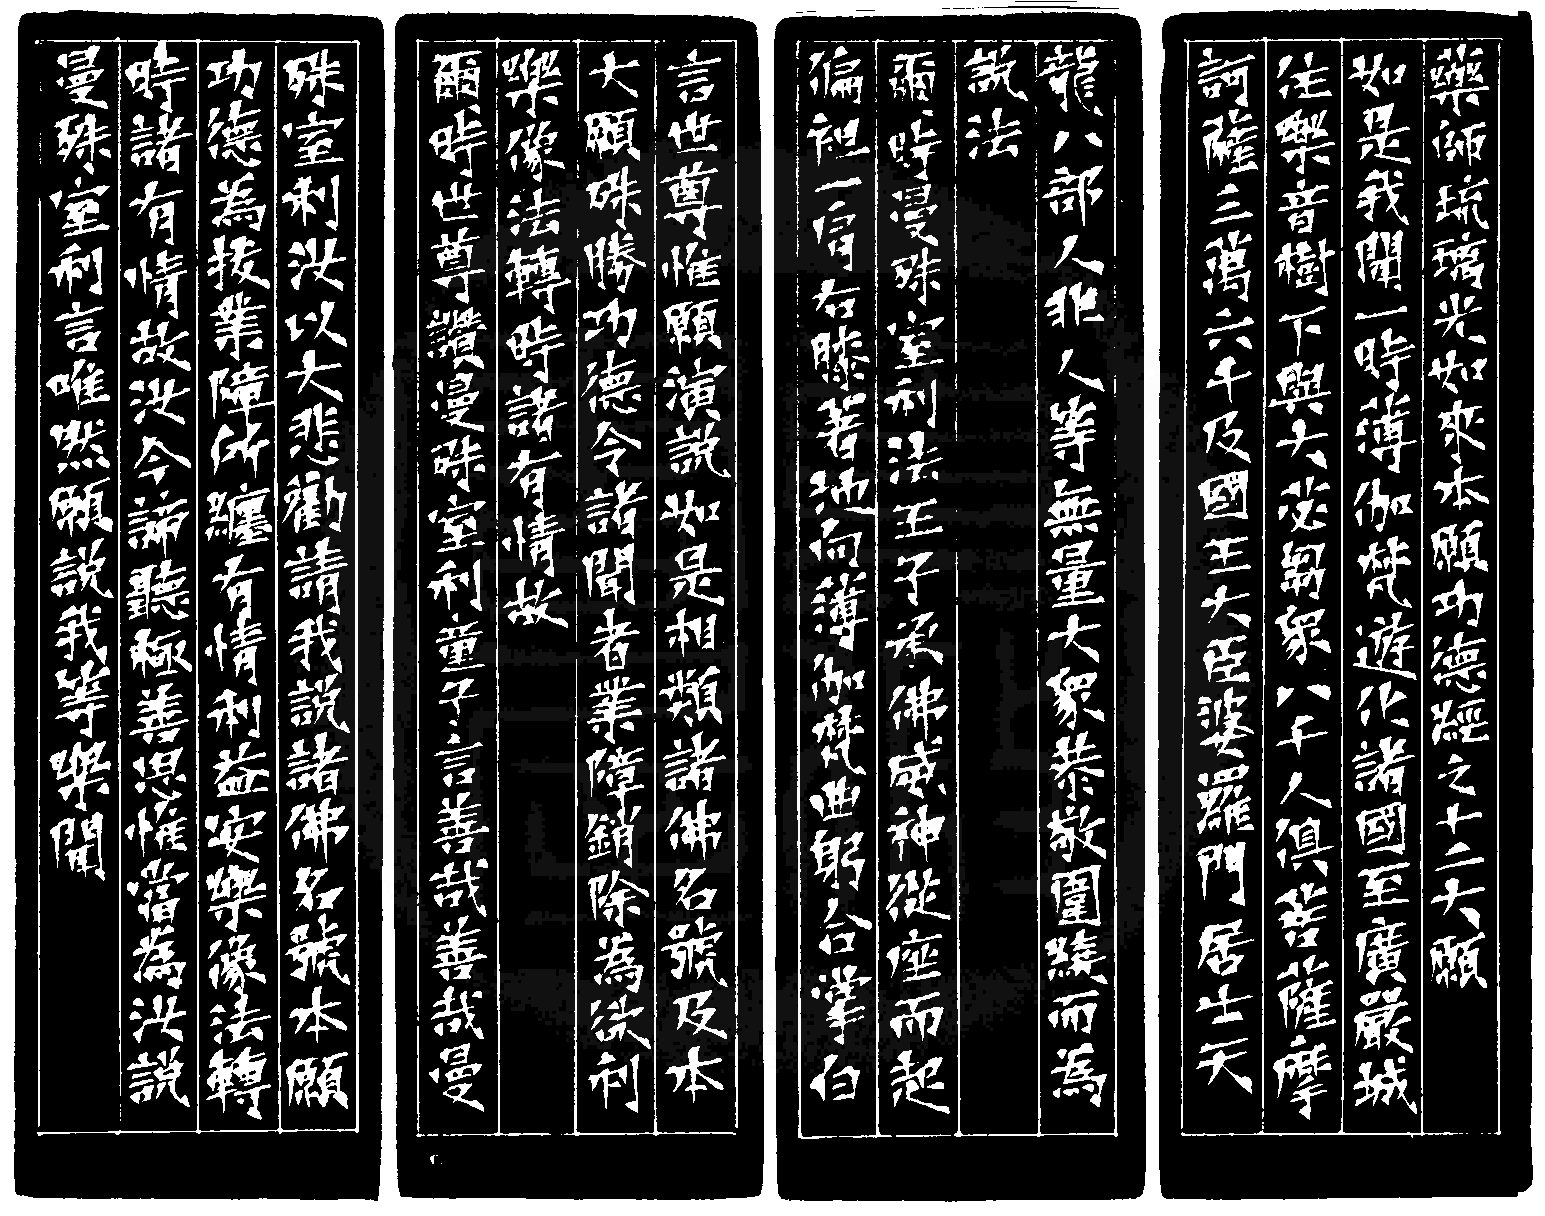 藥師琉璃光如來本願功德經之十二大願
如是我聞一時薄伽梵遊化諸國至廣嚴城
住樂音樹下與大苾芻眾八千人俱菩薩摩
訶薩三萬六千及國王大臣婆羅門居士天
龍八部人非人等無量大眾恭敬圍繞而為
說法
爾時曼殊室利法王子承佛威神從座而起
偏袒一肩右膝著地向薄伽梵曲躬合掌白
言世尊惟願演說如是相類諸佛名號及本
大願殊勝功德令諸聞者業障銷除為欲利
樂像法轉時諸有情故
爾時世尊讚曼殊室利童子言善哉善哉曼
殊室利汝以大悲勸請我說諸佛名號本願
功德為拔業障所纏有情利益安樂像法轉
時諸有情故汝今諦聽極善思惟當為汝說
曼殊室利言唯然願說我等樂聞